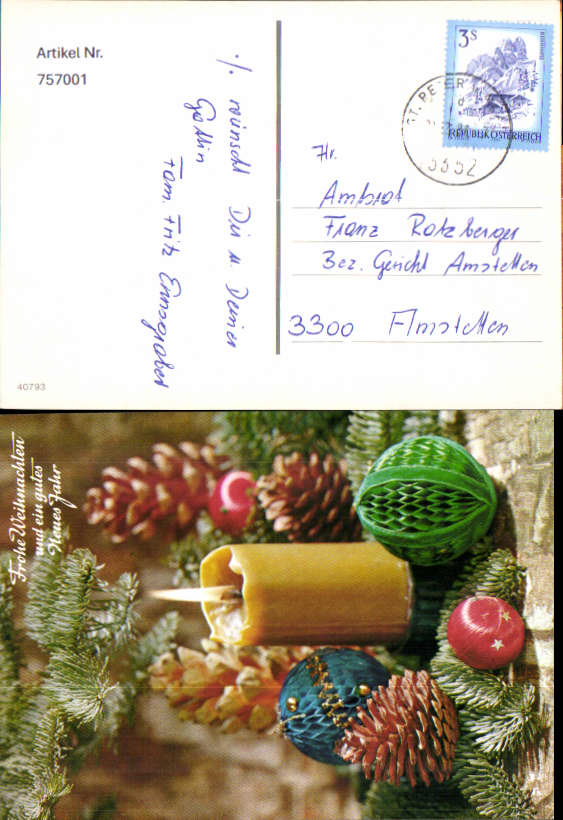 Artikel Nr.
757001
./. wünscht Dir u. Deiner
Gattin
Fam. Fritz
3 S
REPUBLIK ÖSTERREICH
ST. PETER
3352
Hr.
Ambrot
Franz Ratzberger
Bez. Gericht Amstetten
3300 Amstetten
40793
Frohe Weihnachten
und ein gutes
Neues Jahr